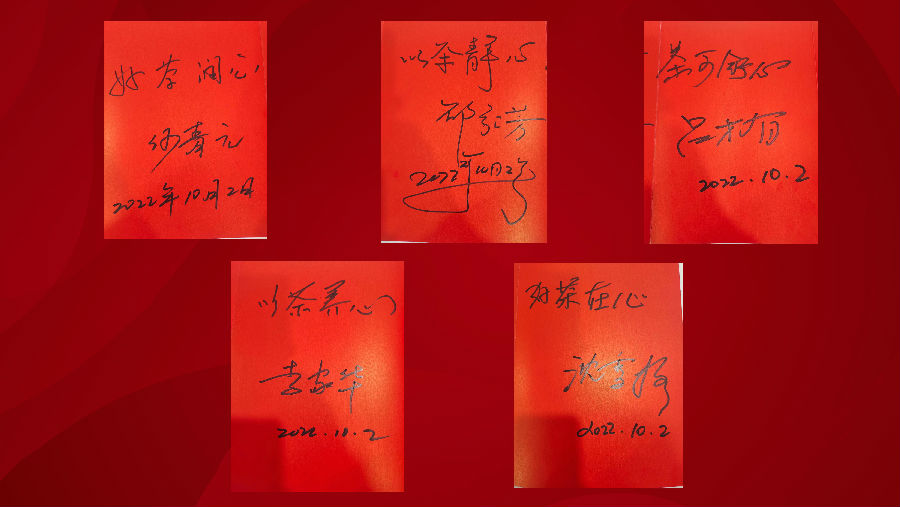 好茶润心
何青元
2022年10月2日
以茶静心
邱引芳
2022年10月2号
茶可舒心
吕才有
2022.10.2
以茶养心
李家华
2022.10.2
好茶在心
2022.10.2